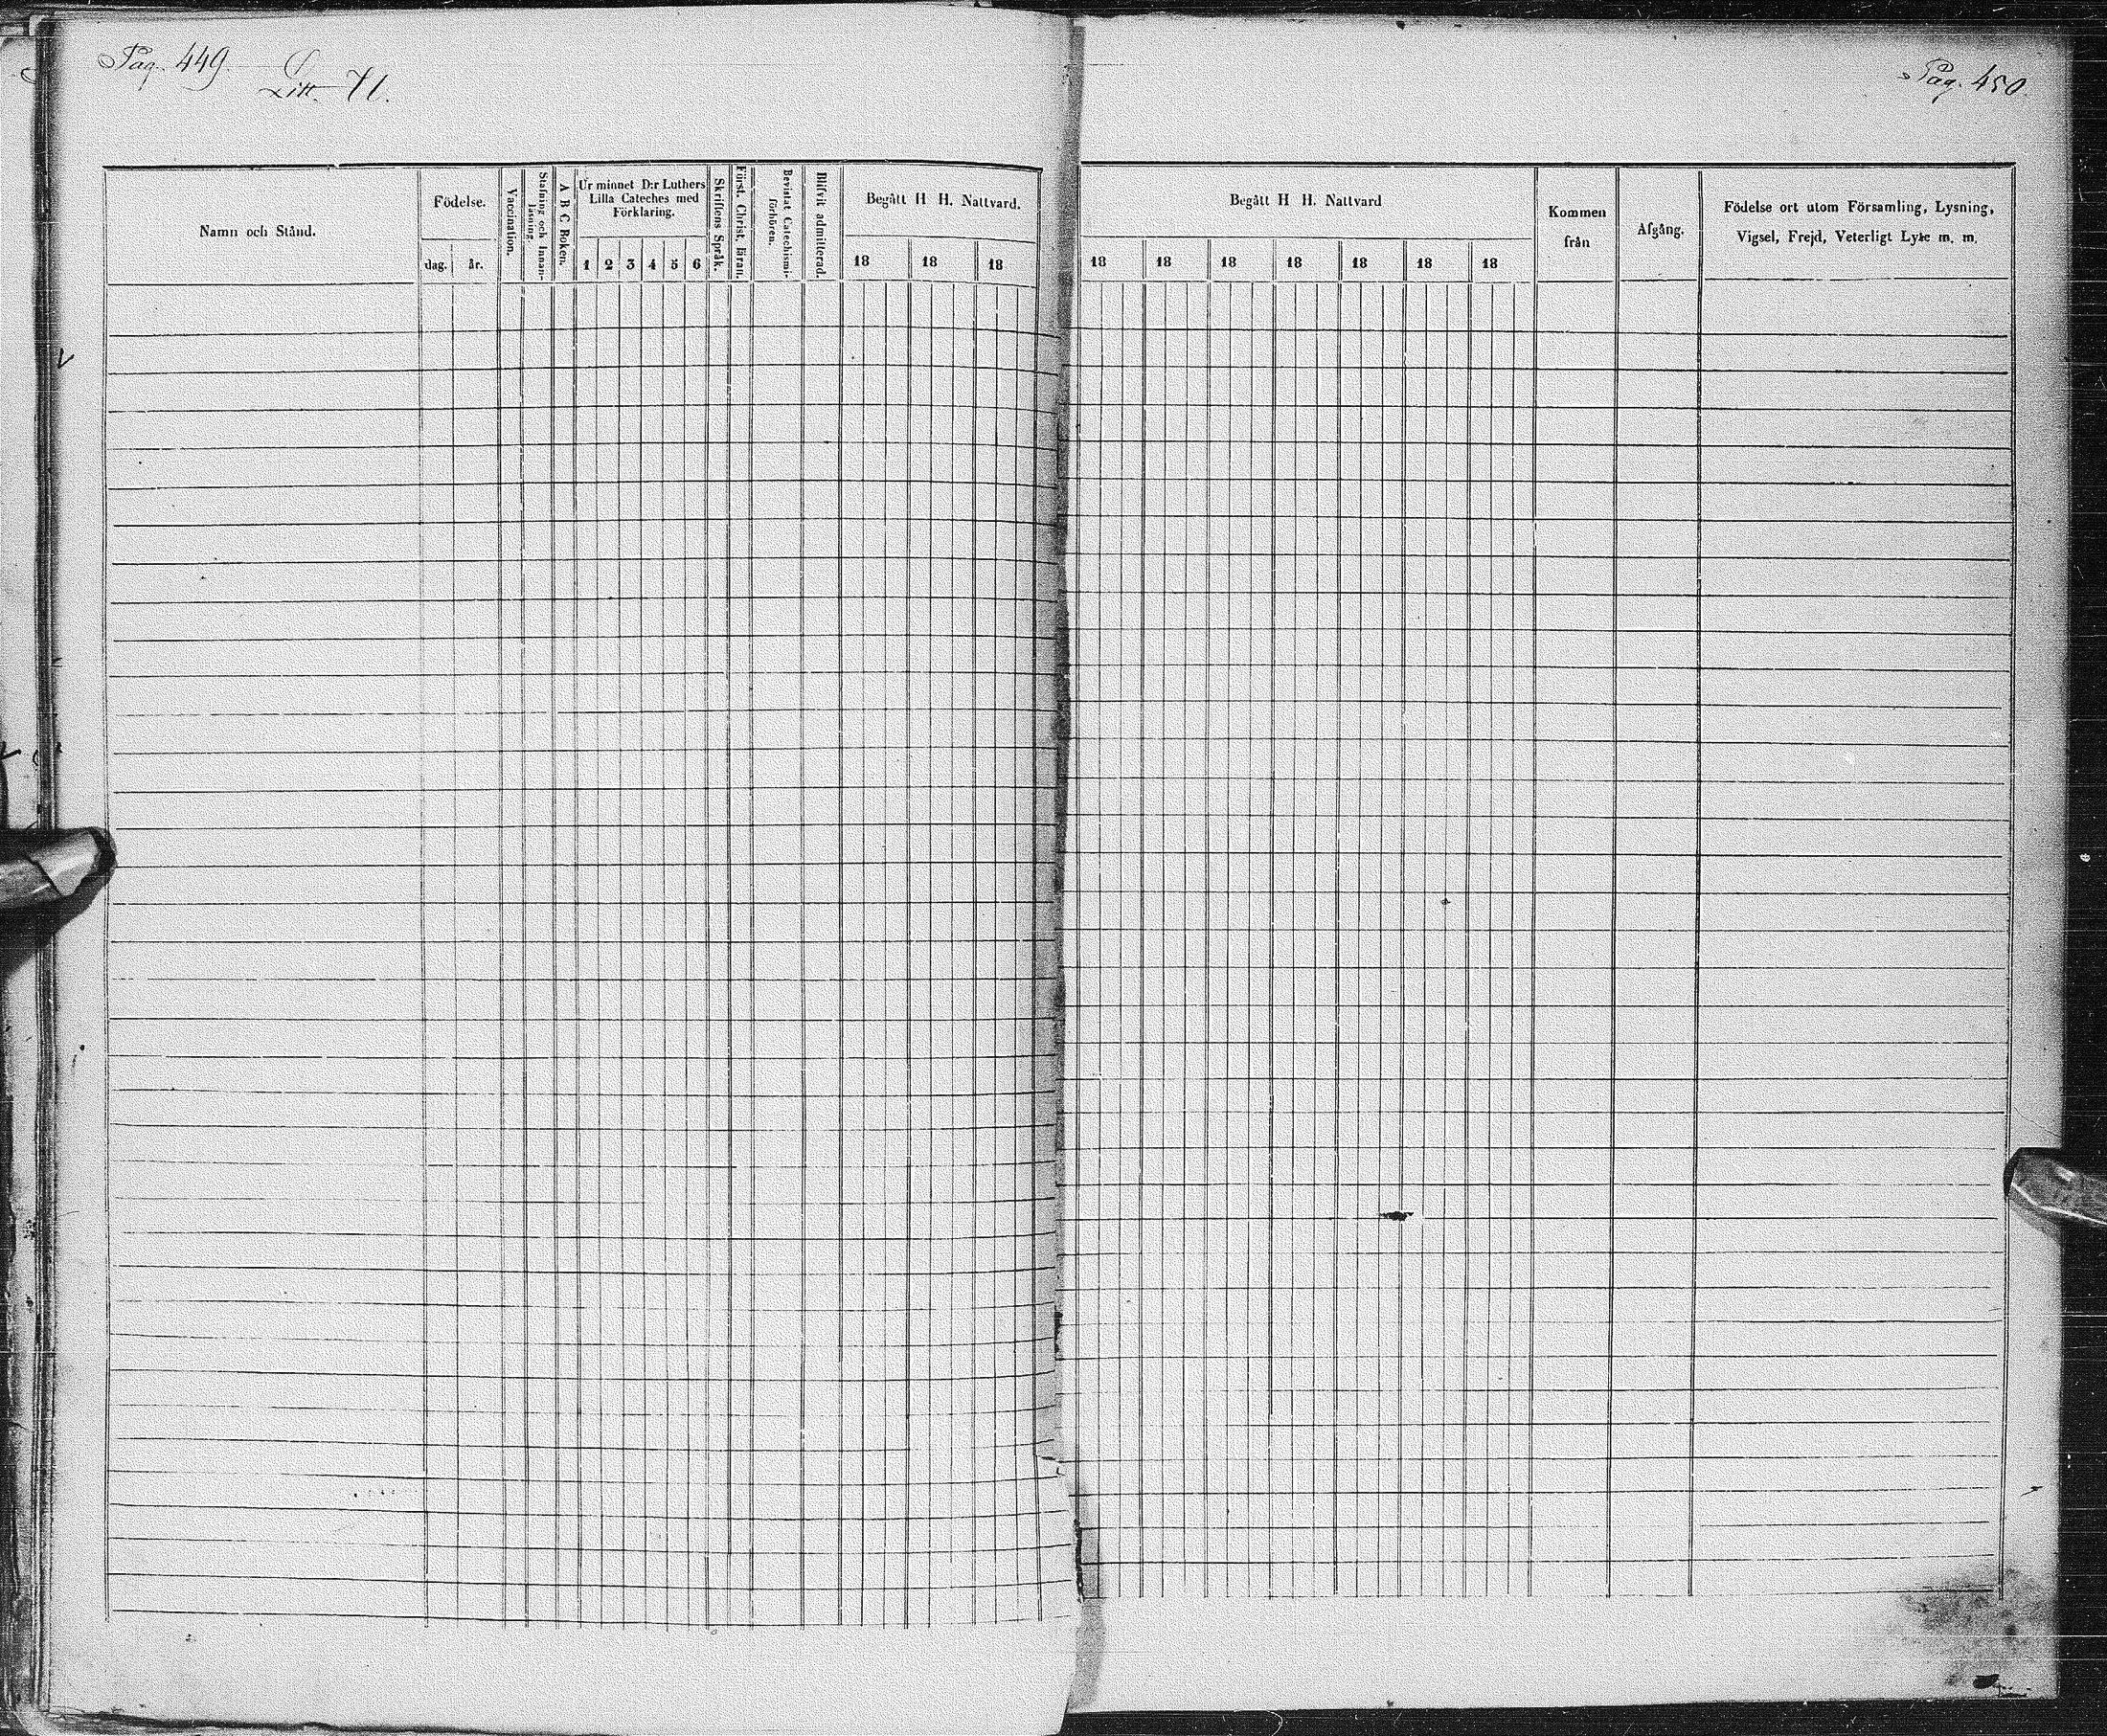 Pag. 449.
Litt.
Pag. 450.
Namn och Stånd.
Födelse.
dag.
år.
Vaccination.
Stafning och Innan-
läsning.
A B C Boken.
Ur minnet D:r Luthers
Lilla Cateches med
Förklaring.
1 2 3 4 5 6
Skriftens Språk.
Först. Christ. läran.
Bevistat Catechismi-
förhören.
Blifvit admitterad.
Begått H H. Nattvard.
18 18 18
Begått H H. Nattvard
18 18 18 18 18 18 18
Kommen
från
Afgång.
Födelse ort utom Församling, Lysning,
Vigsel, Frejd, Veterligt Lyte m. m.